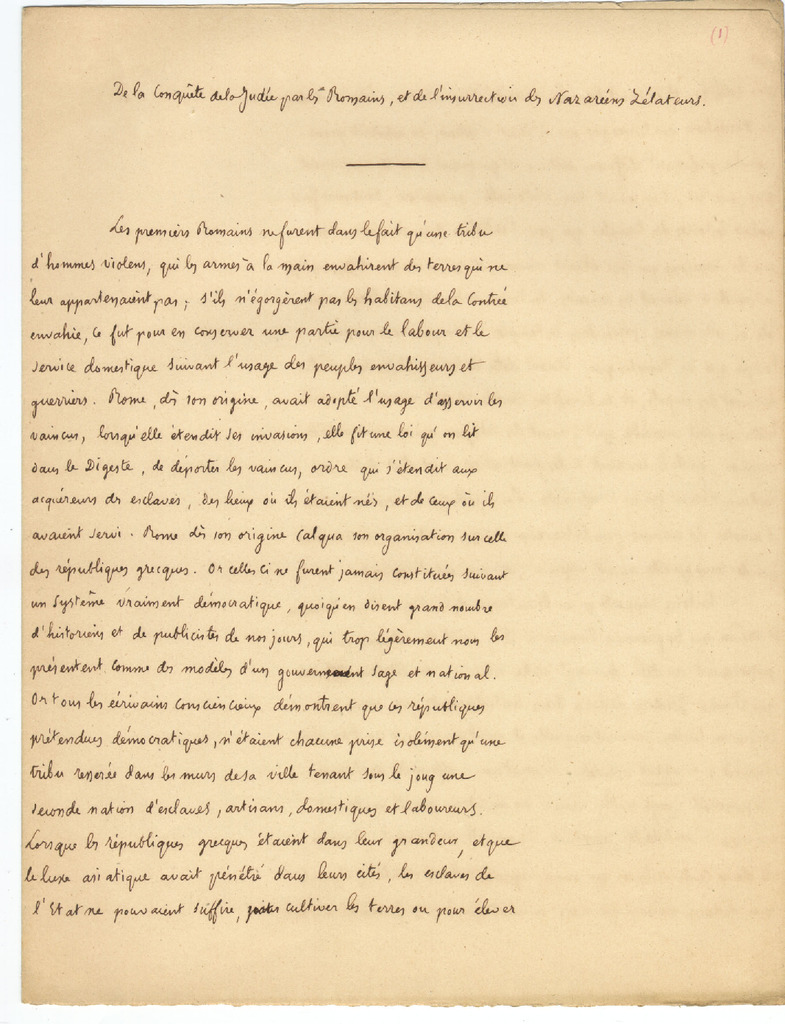 (1)
De la Conquête de la Judée par les Romains, et de l'insurrection des Nazaréens Zélateurs.
Les premiers Romains ne furent dans le fait qu'une tribu
d'hommes violens, qui les armes à la main envahirent des terres qui ne
leur appartenaient pas ; s'ils n'égorgèrent pas les habitans de la Contrée
envahie, ce fut pour en conserver une partie pour le labour et le
service domestique suivant l'usage des peuples envahisseurs et
guerriers. Rome, dès son origine, avait adopté l'usage d'asservir les
vaincus, lorsqu'elle étendit ses invasions, elle fit une loi qu'on lit
dans le Digeste, de déporter les vaincus, ordre qui s'étendit aux
acquéreurs des esclaves, des lieux où ils étaient nés, et de ceux où ils
avaient servi. Rome dès son origine Calqua son organisation sur celle
des républiques grecques. Or celles ci ne furent jamais constituées suivant
un système vraiment démocratique, quoiqu'en disent grand nombre
d'historiens et de publicistes de nos jours, qui trop légèrement nous les
présentent comme des modèles d'un gouvernement sage et national.
Or tous les écrivains consciencieux démontrent que ces républiques
prétendues démocratiques, n'étaient chacune prise isolément qu'une
tribu resserée dans les murs de sa ville tenant sous le joug une
seconde nation d'esclaves, artisans, domestiques et laboureurs.
Lorsque les républiques grecques étaient dans leur grandeur, et que
le luxe asiatique avait pénétré dans leurs cités, les esclaves de
l'Etat ne pouvaient suffire, cultiver les terres ou pour élever